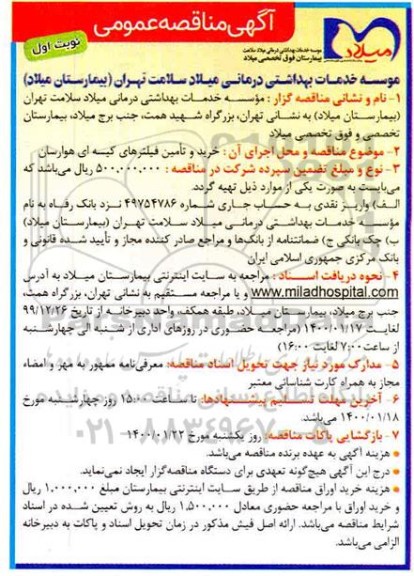 آگهی مناقصه عمومی
نوبت اول
میلاد
موسسه خدمات بهداشتی درمانی میلاد سلامت
بیمارستان فوق تخصصی میلاد
موسسه خدمات بهداشتی درمانی میلاد سلامت تهران (بیمارستان میلاد)
۱- نام و نشانی مناقصه گزار : مؤسسه خدمات بهداشتی درمانی میلاد سلامت تهران
(بیمارستان میلاد) به نشانی تهران، بزرگراه شهید همت، جنب برج میلاد، بیمارستان
تخصصی و فوق تخصصی میلاد
۲- موضوع مناقصه و محل اجرای آن : خرید و تأمین فیلترهای کیسه ای هوارسان
۳- نوع و مبلغ تضمین سپرده شرکت در مناقصه : ۵۰۰,۰۰۰,۰۰۰ ریال می‌باشد که
می‌بایست به صورت یکی از موارد ذیل تهیه گردد.
الف) واریز نقدی به حساب جاری شماره ۴۹۷۵۴۷۸۶ نزد بانک رفاه به نام
مؤسسه خدمات بهداشتی درمانی میلاد سلامت تهران (بیمارستان میلاد)
ب) چک بانکی ج) ضمانتنامه از بانک‌ها و مراجع صادر کننده مجاز و تأیید شده قانونی و
بانک مرکزی جمهوری اسلامی ایران
۴- نحوه دریافت اسناد : مراجعه به سایت اینترنتی بیمارستان میلاد به آدرس
www.miladhospital.com و یا مراجعه مستقیم به نشانی تهران، بزرگراه همت،
جنب برج میلاد، بیمارستان میلاد، طبقه همکف، واحد دبیرخانه از تاریخ ۹۹/۱۲/۲۶
لغایت ۱۴۰۰/۰۱/۱۷ (مراجعات حضوری در روزهای اداری از شنبه الی چهارشنبه
از ساعت ۷:۰۰ لغایت ۱۶:۰۰)
۵- مدارک مورد نیاز جهت تحویل اسناد مناقصه: معرفی‌نامه ممهور به مهر و امضاء
مجاز به همراه کارت شناسائی معتبر
۶- آخرین مهلت تسلیم پیشنهادها: تا ساعت ۱۵:۰۰ روز چهارشنبه مورخ
۱۴۰۰/۰۱/۱۸ می‌باشد.
۷- بازگشایی پاکات مناقصه: روز یکشنبه مورخ ۱۴۰۰/۰۱/۲۲
* هزینه آگهی به عهده برنده مناقصه می‌باشد.
* درج این آگهی هیچ‌گونه تعهدی برای دستگاه مناقصه‌گزار ایجاد نمی‌نماید.
* هزینه خرید اوراق مناقصه از طریق سایت اینترنتی بیمارستان مبلغ ۱,۰۰۰,۰۰۰ ریال
و خرید اوراق با مراجعه حضوری معادل ۱,۵۰۰,۰۰۰ ریال به روش تعیین شده در اسناد
شرایط مناقصه می‌باشد. ارائه اصل فیش مذکور در زمان تحویل اسناد و پاکات به دبیرخانه
الزامی می‌باشد.
۰۲۱-۸۸۳۴۹۶۷۰-۵